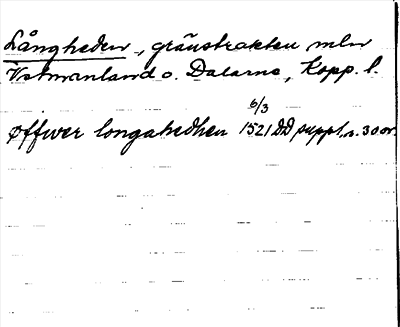 Långheden, gränstrakten mln
Vstmanland o. Dalarne, Kopp. l.
6/3
øffwer longahedhen 1521 DD suppl. n. 30 or.